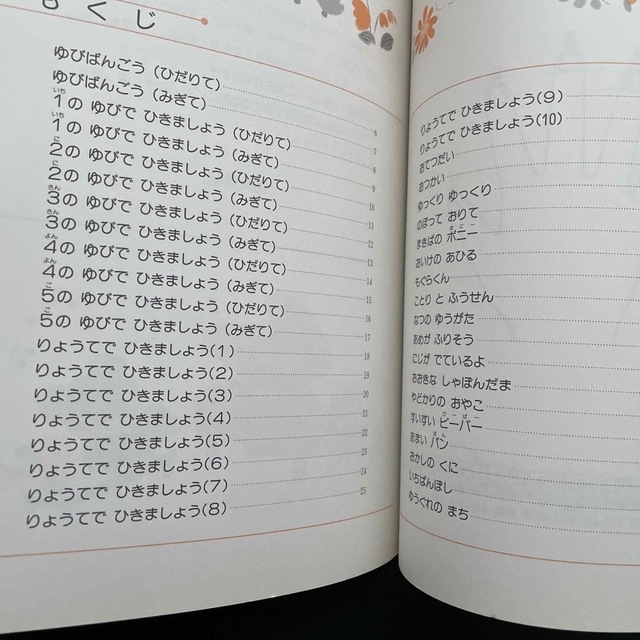 もくじ
ゆびばんごう（ひだりて） 6
ゆびばんごう（みぎて） 7
いち
1の ゆびで ひきましょう（ひだりて） 8
いち
1の ゆびで ひきましょう（みぎて） 9
に
2の ゆびで ひきましょう（ひだりて） 10
に
2の ゆびで ひきましょう（みぎて） 11
さん
3の ゆびで ひきましょう（ひだりて） 12
さん
3の ゆびで ひきましょう（みぎて） 13
よん
4の ゆびで ひきましょう（ひだりて） 14
よん
4の ゆびで ひきましょう（みぎて） 15
ご
5の ゆびで ひきましょう（ひだりて） 16
ご
5の ゆびで ひきましょう（みぎて） 17
りょうてで ひきましょう(1) 18
りょうてで ひきましょう(2) 19
りょうてで ひきましょう(3) 20
りょうてで ひきましょう(4) 21
りょうてで ひきましょう(5) 22
りょうてで ひきましょう(6) 23
りょうてで ひきましょう(7) 24
りょうてで ひきましょう(8) 25
りょうてで ひきましょう(9)
りょうてで ひきましょう(10)
おてつだい
おつかい
ゆっくり ゆっくり
のぼって おりて
ぽにー
まきばの ポニー
おいけの あひる
もぐらくん
ことり と ふうせん
なつの ゆうがた
あめが ふりそう
にじが でているよ
おおきな しゃぼんだま
やどかりの おやこ
びーばー
すいすい ビーバー
ぱん
あまい パン
おかしの くに
いちばんぼし
ゆうぐれの まち